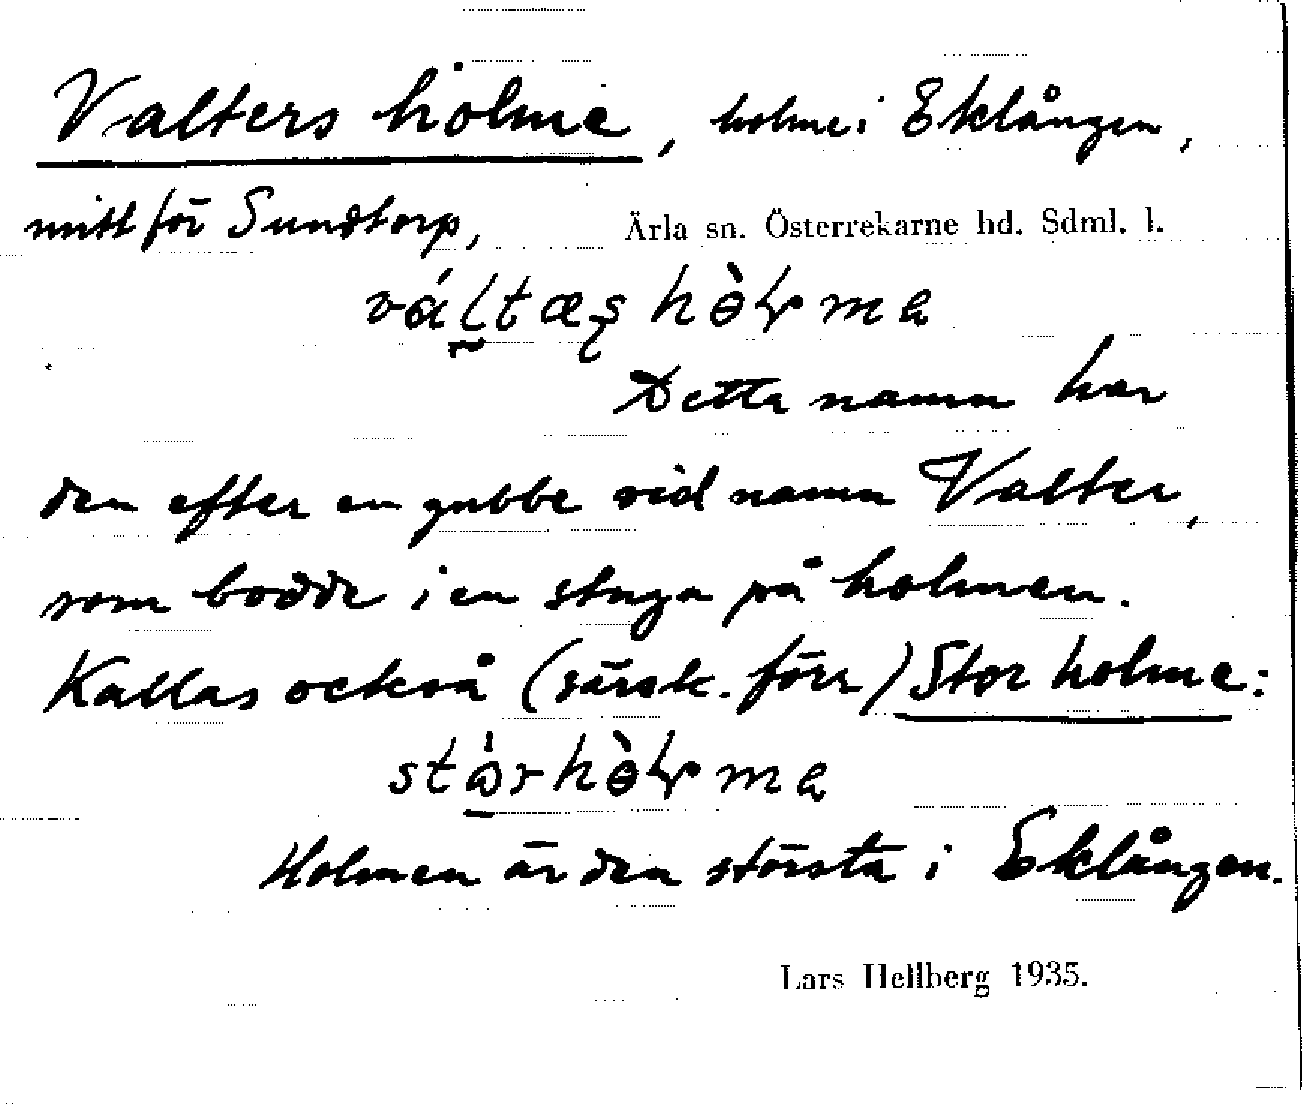 Valters holme, holme i Eklången,
mitt för Sundtorp, Ärla sn. Österrekarne hd. Sdml. l.
Detta namn har
den efter en gubbe vid namn Valter,
som bodde i en stuga på holmen.
Kallas också (särsk. förr) Stor holme:
Holmen är den största i Eklången.
Lars Hellberg 1935.